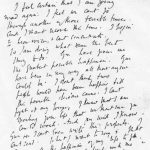 I feel certain that I am going
mad again: I feel we cant go
through another of these terrible times.
And I shant recover this time. I begin
to hear voices, and cant concentrate.
So I am doing what seems the best
thing to do. You have given me
the greatest possible happiness. You
have been in every way all that anyone
could be. I dont think two
people could have been happier till
this terrible disease came. I cant
fight it any longer, I know that I am
spoiling your life, that without me you
could work. And you will I know.
You see I cant even write this properly. I
cant read.